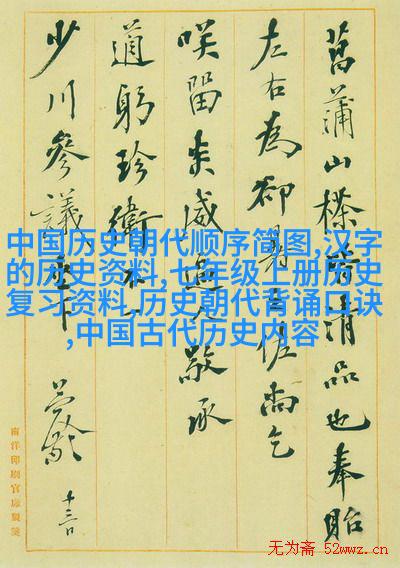 菖蒲山清品也奉貽
左右為卻暑佐尚乞
咲留炎威逼人敬承
適躬珍衛不一
少川參議座下
十三日
南洋印刷官廠製箋
中国历史朝代顺序简图,汉字
的历史资料,七年级上册历史
复习资料,历史朝代背诵口诀
,中国古代历史内容
无为斋 52wwz.cn